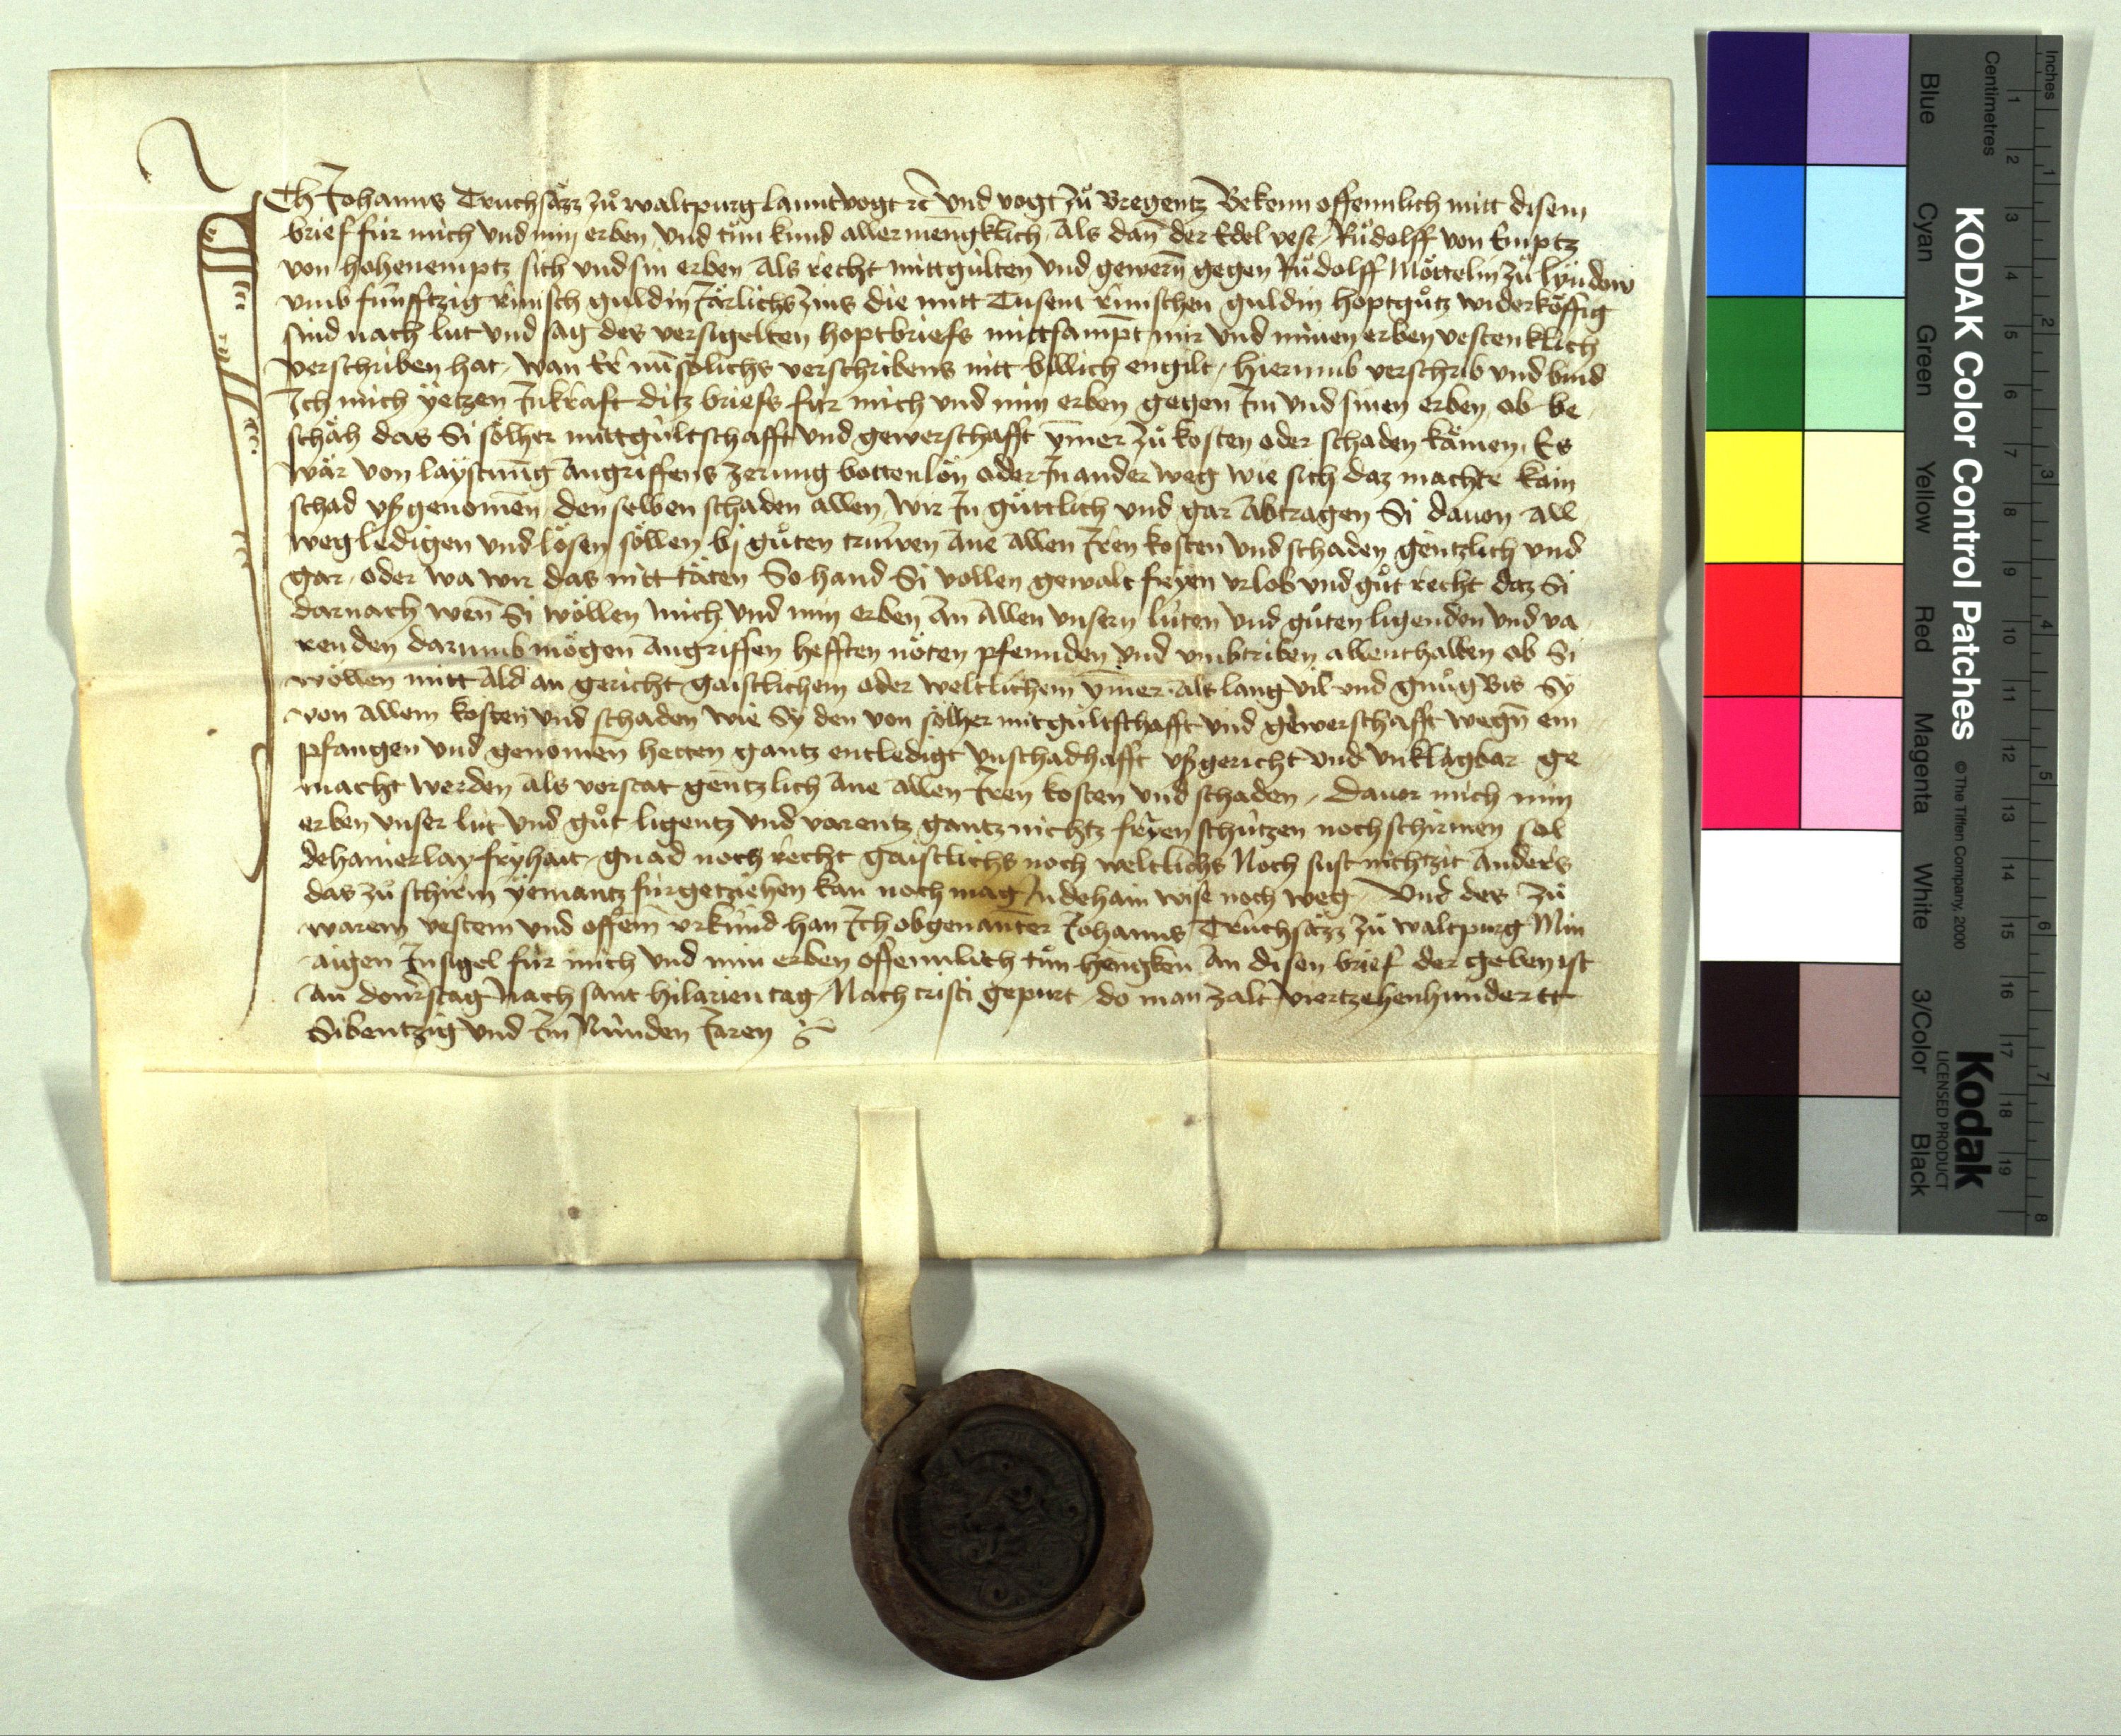 ICh Johanns Truchsäzz zů waltpurg lanntvogt rc̄ vnd vogt zů Bregentz Bekenn offennlich mitt disem
brief für mich vnd min erben vnd tůn kund allermengklich, Als dañ der Edel vest Růdolff von Emptz
von hohenemptz sich vnd sin erben als recht mittgülten vnd gewerñ gegen Růdolff Möttelin zů lyndow
vmb fünfftzig rinisch guldin Järlichs zins die mitt Tusent rinischen guldin hoptgůtz widerköffig
sind nach lut vnd sag des versigelten hoptbriefs mittsampt mir vnd minen erben vestenklich
verschriben hat, wan Er nū sölichs verschribens nitt billich engilt, hierumb verschrib vnd bind
Ich mich yetzen Inkraft ditz briefs für mich vnd min erben gegen Im vnd sinen erben, ob be
schäh das Si sölher mittgültschafft vnd gewerschafft ym̄er zů kosten oder schaden kämen, Es
wär von laystung angriffens zerung bottenlon oder In ander weg wie sich daz machte kain
schad vßgenomēn, den selben schaden allen, wir In güttlich vnd gar Abtragen Si dauon all
weg ledigen vnd lösen söllen bj gůten trüwen āne allen Jren kosten vnd schaden gentzlich vnd
gar, oder wa wir das nitt täten So hand Si vollen gewalt fryen vrlob vnd gůt recht daz Si
darnach weñ Si wöllen mich vnd min erben An Allen vnsern lüten vnd gůten ligenden vnd va
renden darumb mögen angriffen hefften nöten pfennden vnd vmbtriben allenthalben ob Si
wöllen mitt Ald an gericht gaistlichem oder weltlichem ym̄er als lang vil vnd gnůg Bis Sy
von allem kosten vnd schaden wie Sy den von sölher mitgültschafft vnd gewerschafft wegñ em
pfangen vnd genomēn hetten gantz entledigt vnschadhafft vßgericht vnd vnklagbar ge
macht werden Als vorstat gentzlich āne allen Jren kosten vnd schaden, Dauor mich min
erben vnser lüt vnd gůt ligentz vnd varentz gantz nichtz fryen schützen noch schirmen sol
dehainerlay fryhait, gnad noch recht gaistlichs noch weltlichs Noch sust nichtzit anders
das zů schirm yemantz fürgeziehen kan noch mag In dehain wise noch weg Vnd des zů
warem vestem vnd offem vrkünd han Ich obgenanter Johanns Truchsäzz zů waltpurg Min
aigen Insigel für mich vnd min erben offennlich tůn hengken An disen brief der geben ist
an donrstag nach sant hilarien tag, Nach cristi gepurt, do man zalt viertzehenhundertt
Sibentzig vnd Im Nünden Jaren
KODAK Color Control Patches
© The Tiffen Company, 2000
Kodak
LICENSED PRODUCT
Blue
Cyan
Green
Yellow
Red
Magenta
White
3/Color
Black
Inches
1 2 3 4 5 6 7 8
Centimetres
1 2 3 4 5 6 7 8 9 10 11 12 13 14 15 16 17 18 19